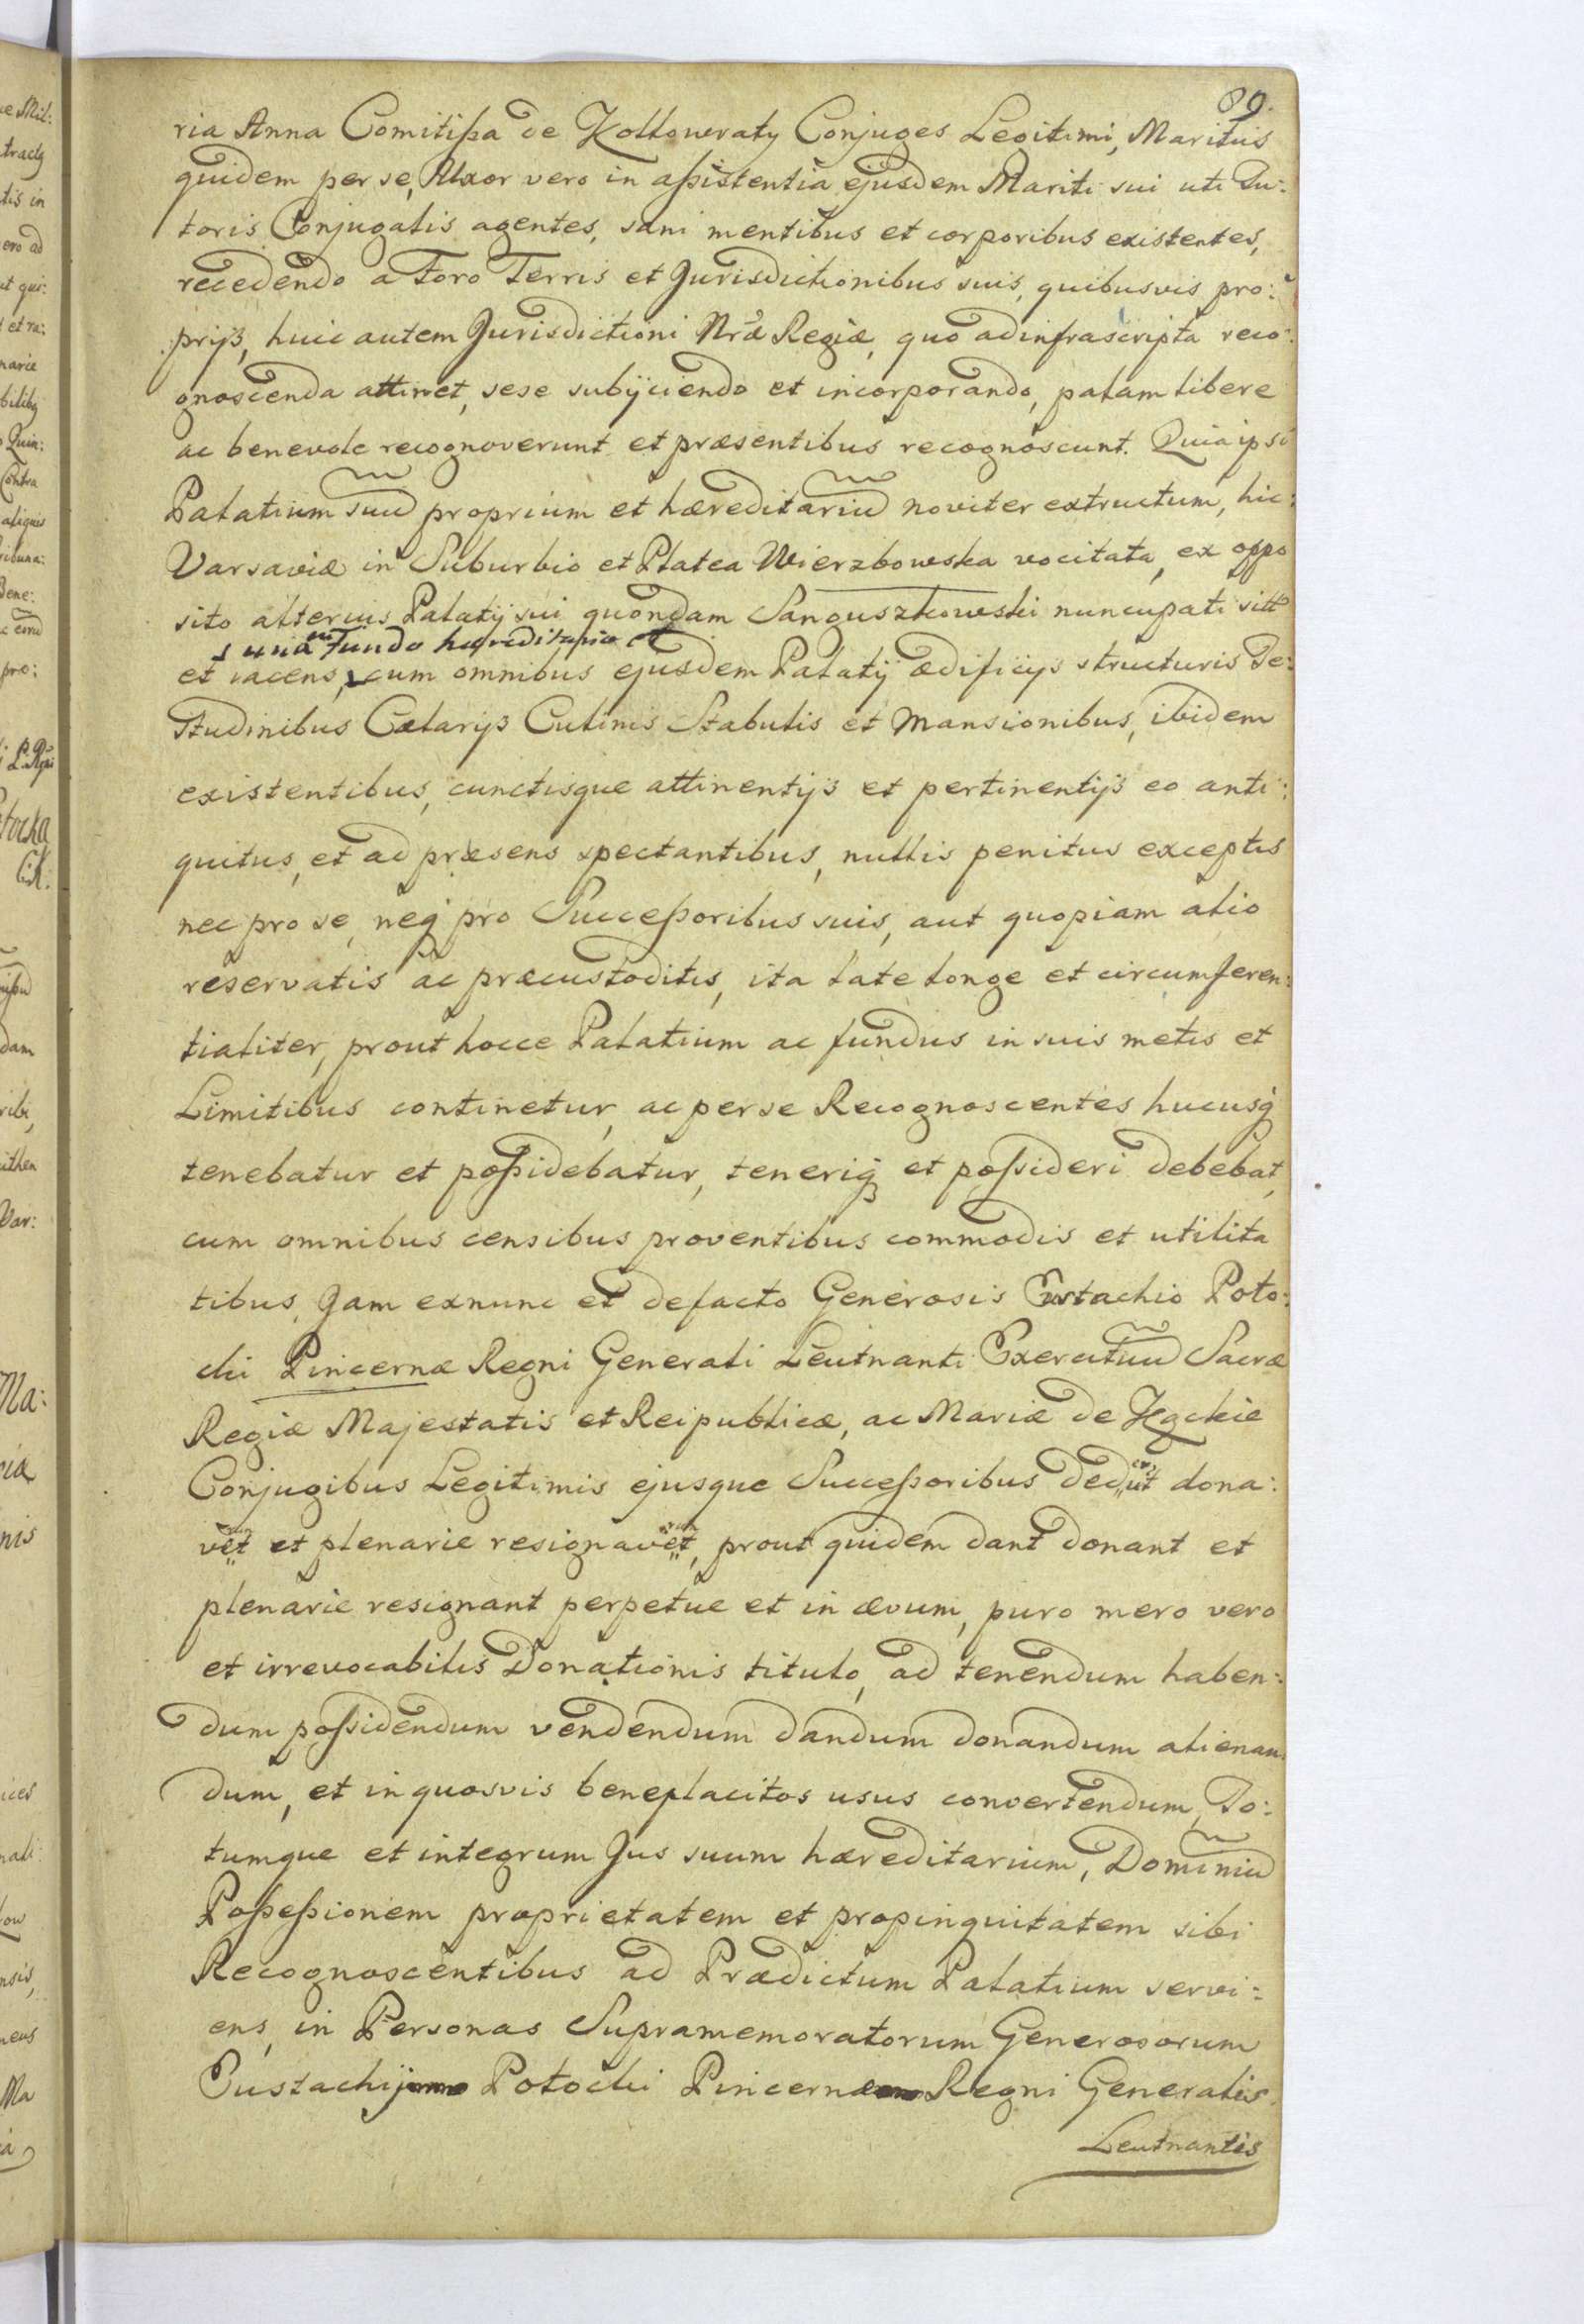 89.
ria Anna Comitißa de Kollowraty Conjuges Legitimi, Maritus
quidem per se, Uxor vero in aßistentia ejusdem Mariti sui uti Tu:
toris Conjugalis agentes, sani mentibus et corporibus existentes,
recedendo a Foro Terris et Jurisdictionibus suis, quibusvis pro:
prijs, huic autem Jurisdictioni Nrae Regiae, quo ad infrascripta reco:
gnoscenda attinet, sese subijciendo et incorporando, palam libere
ac benevole recognoverunt et praesentibus recognoscunt. Quia ipsi
Palatium suũ proprium et haereditariũ noviter extructum, hic:
Varsaviae in Suburbio et Platea Wierzbowska vocitata, ex oppo
sito alterius Palatij sui quondam Sanguszkowski nuncupati sitũ
una cum Fundo haereditario et
et iacens, cum omnibus ejusdem Palatij aedificijs structuris Te:
studinibus Celarijs Culinis Stabulis et Mansionibus, ibidem
existentibus, cunctisque attinentijs et pertinentijs eo anti:
quitus, et ad praesens spectantibus, nullis penitus exceptis
nec pro se, neq̃ pro Succeßoribus suis, aut quopiam alio
reservatis ac praecustoditis, ita late longe et circumferen:
tialiter, prout hocce Palatium ac fundus in suis metis et
Limitibus continetur, ac per se Recognoscentes hucusq̃
tenebatur et poßidebatur, teneriq̃ et poßideri debebat,
cum omnibus censibus proventibus commodis et utilita
tibus, Jam exnunc et defacto Generosis Eustachio Poto:
cki Pincernae Regni Generali Leutnanti Exercituũ Sacrae
Regiae Majestatis et Reipublicae, ac Mariae de Kąckie
Conjugibus Legitimis ejusque Succeßoribus dedũt dona:
vẽt et plenarie resignavẽt, prout quidem dant donant et
plenarie resignant perpetue et in aevum, puro mero vero
et irrevocabilis Donationis titulo, ad tenendum haben:
dum poßidendum vendendum dandum donandum alienan:
dum, et in quosvis beneplacitos usus convertendum, To:
tumque et integrum Jus suum haereditarium, Dominiũ
Poßeßionem proprietatem et propinquitatem sibi
Recognoscentibus ad Praedictum Palatium servi:
ens, in Personas Supramemoratorum Generosorum
Eustachij Potocki Pincernae Regni Generalis
Leutnantis